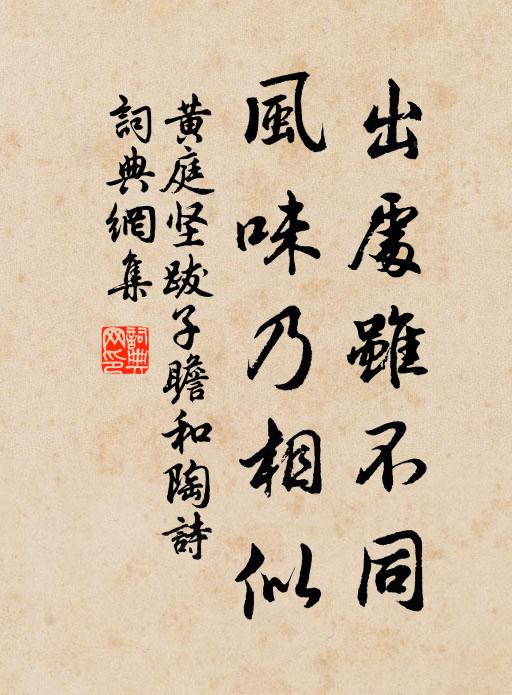 出處雖不同
風味乃相似
黄庭坚跋子瞻和陶詩
詞典網集
詞典網印